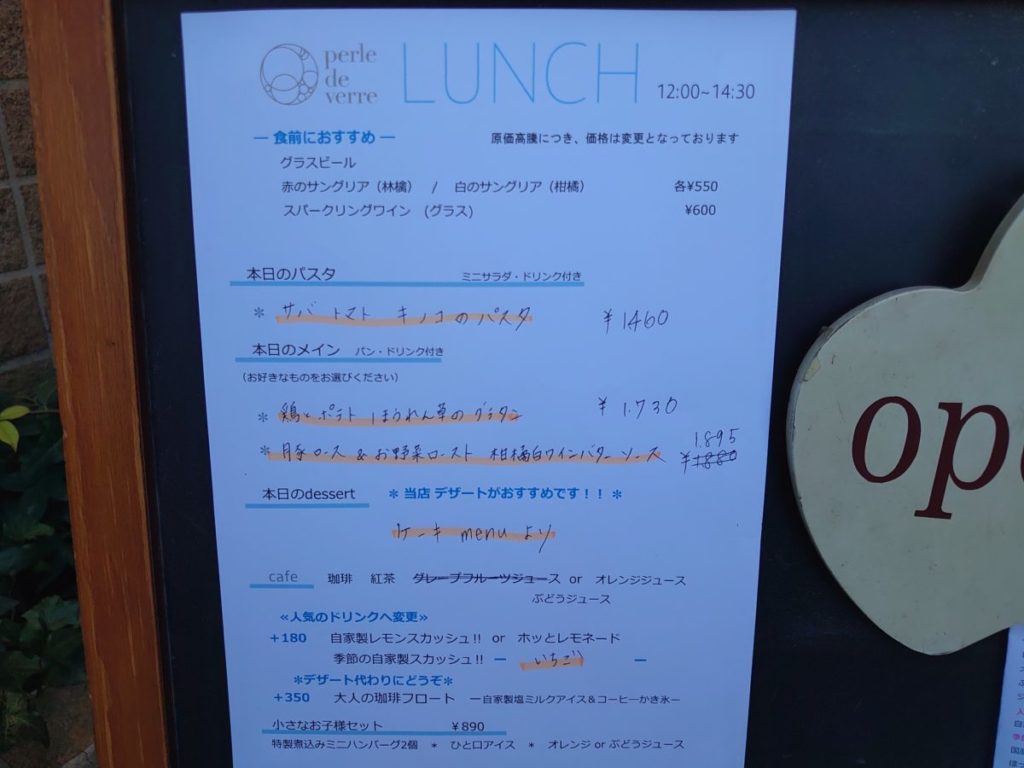 perle
de
verre
LUNCH 12:00~14:30
― 食前におすすめ ― 原価高騰につき、価格は変更となっております
グラスビール
赤のサングリア（林檎） / 白のサングリア（柑橘） 各¥550
スパークリングワイン (グラス) ¥600
本日のパスタ ミニサラダ・ドリンク付き
＊ サバ トマト キノコのパスタ ¥1460
本日のメイン パン・ドリンク付き
（お好きなものをお選びください）
＊ 鶏とポテト ほうれん草のグラタン ¥1.730
1.895
＊ 豚ロース & お野菜ロースト 柑橘白ワインバターソース ¥1880
本日のdessert ＊ 当店 デザートがおすすめです！！ ＊
ケーキ menu より
cafe 珈琲 紅茶 グレープフルーツジュース or オレンジジュース
ぶどうジュース
≪人気のドリンクへ変更≫
+180 自家製レモンスカッシュ!! or ホッとレモネード
季節の自家製スカッシュ!! ― いちご ―
＊デザート代わりにどうぞ＊
+350 大人の珈琲フロート ―自家製塩ミルクアイス＆コーヒーかき氷―
小さなお子様セット ¥890
特製煮込みミニハンバーグ2個 ＊ ひと口アイス ＊ オレンジ or ぶどうジュース
ope